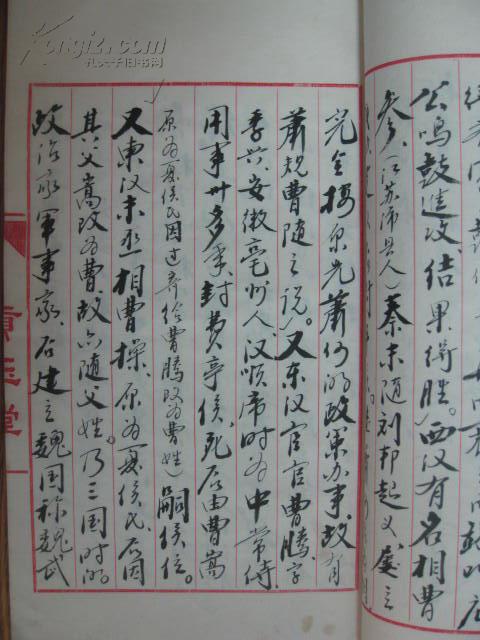 公鸣鼓進攻、结果得胜。西汉有名相曹
参、(江苏沛县人)秦末随刘邦起义、屡立
完全按原先萧何的政策办事、故有
萧规曹随之说。又东汉宦官曹腾、字
季兴、安徽亳州人、汉顺帝时为中常侍
用事卅多年、封费亭侯、死后由曹嵩
原为夏侯氏因过齐给曹腾改为曹姓)嗣侯位。
又東汉末丞相曹操、原为夏侯氏、后因
其父嵩改为曹、故亦随父姓。乃三国时的
政治家軍事家、后建立魏国称魏武
黄玉堂
Kongfz.com
孔夫子旧书网